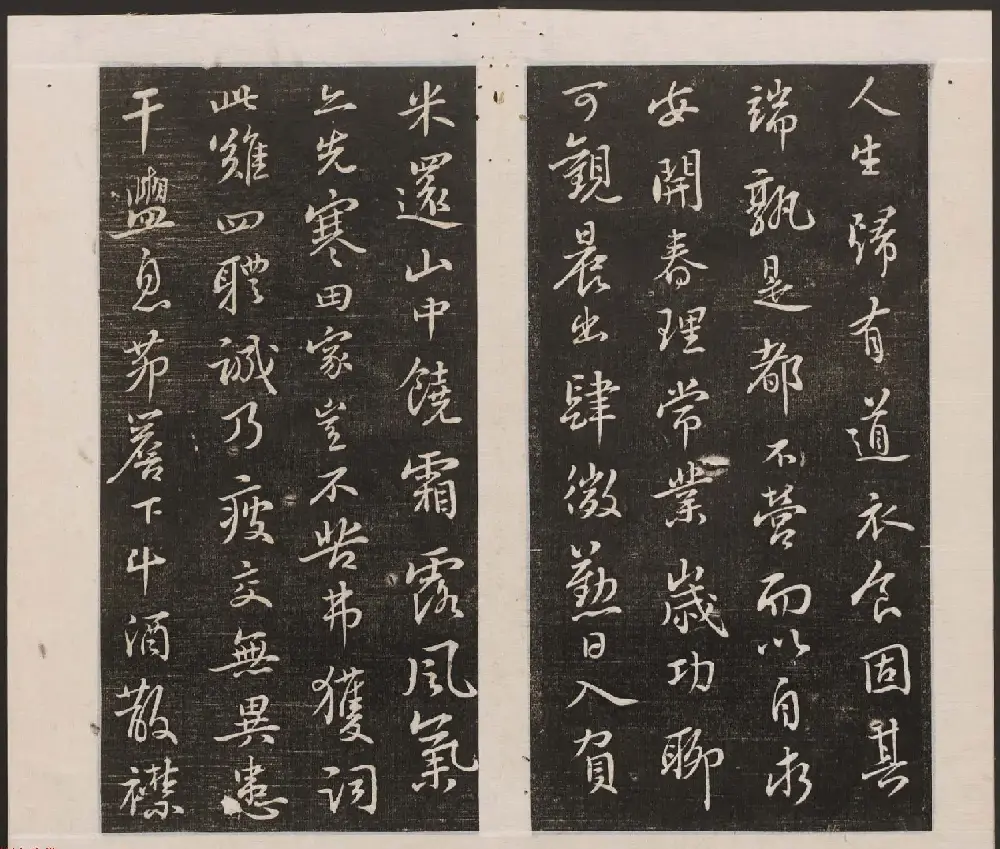 人生歸有道衣食固其
端孰是都不營而以自求
安開春理常業歲功聊
可觀晨出肆微勤日入負
米還山中饒霜露風氣
亦先寒田家豈不苦弗獲詞
此難四體誠乃疲交無異患
干盥息茆簷下斗酒散襟